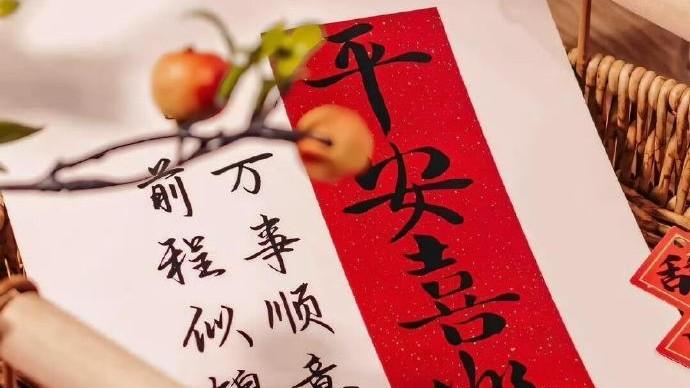 平安喜
万事顺意
前程似